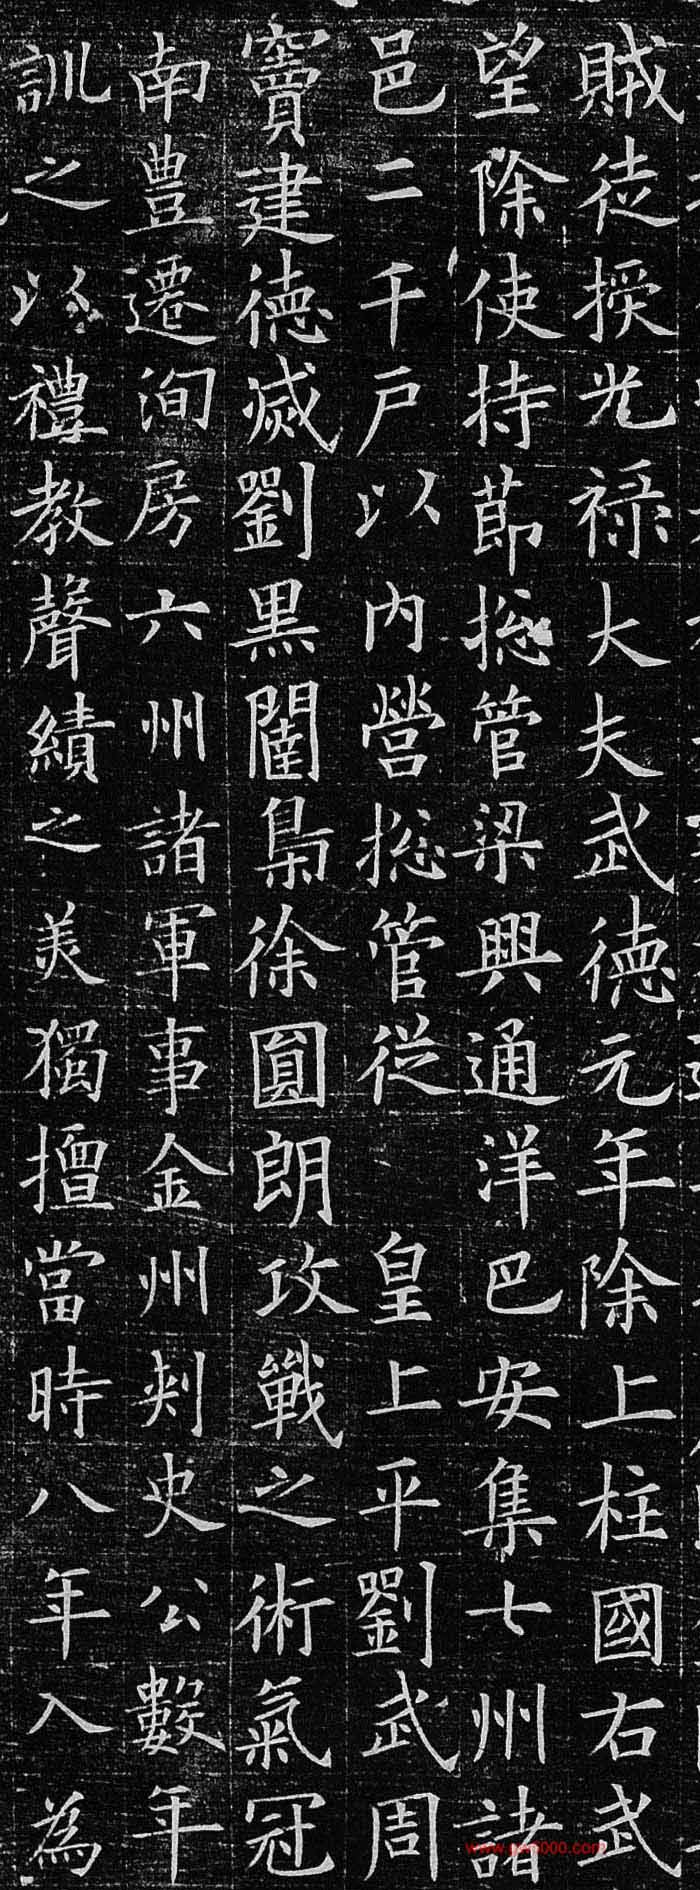 賊徒授光祿大夫武德元年除上柱國右武
望除使持節捴管梁興通洋巴安集七州諸
邑二千戶以內營捴管從 皇上平劉武周
竇建德滅劉黑闥梟徐圓朗攻戰之術氣冠
南豐遷洵房六州諸軍事金州刾史公數年
訓之以禮教聲績之美獨擅當時八年入為